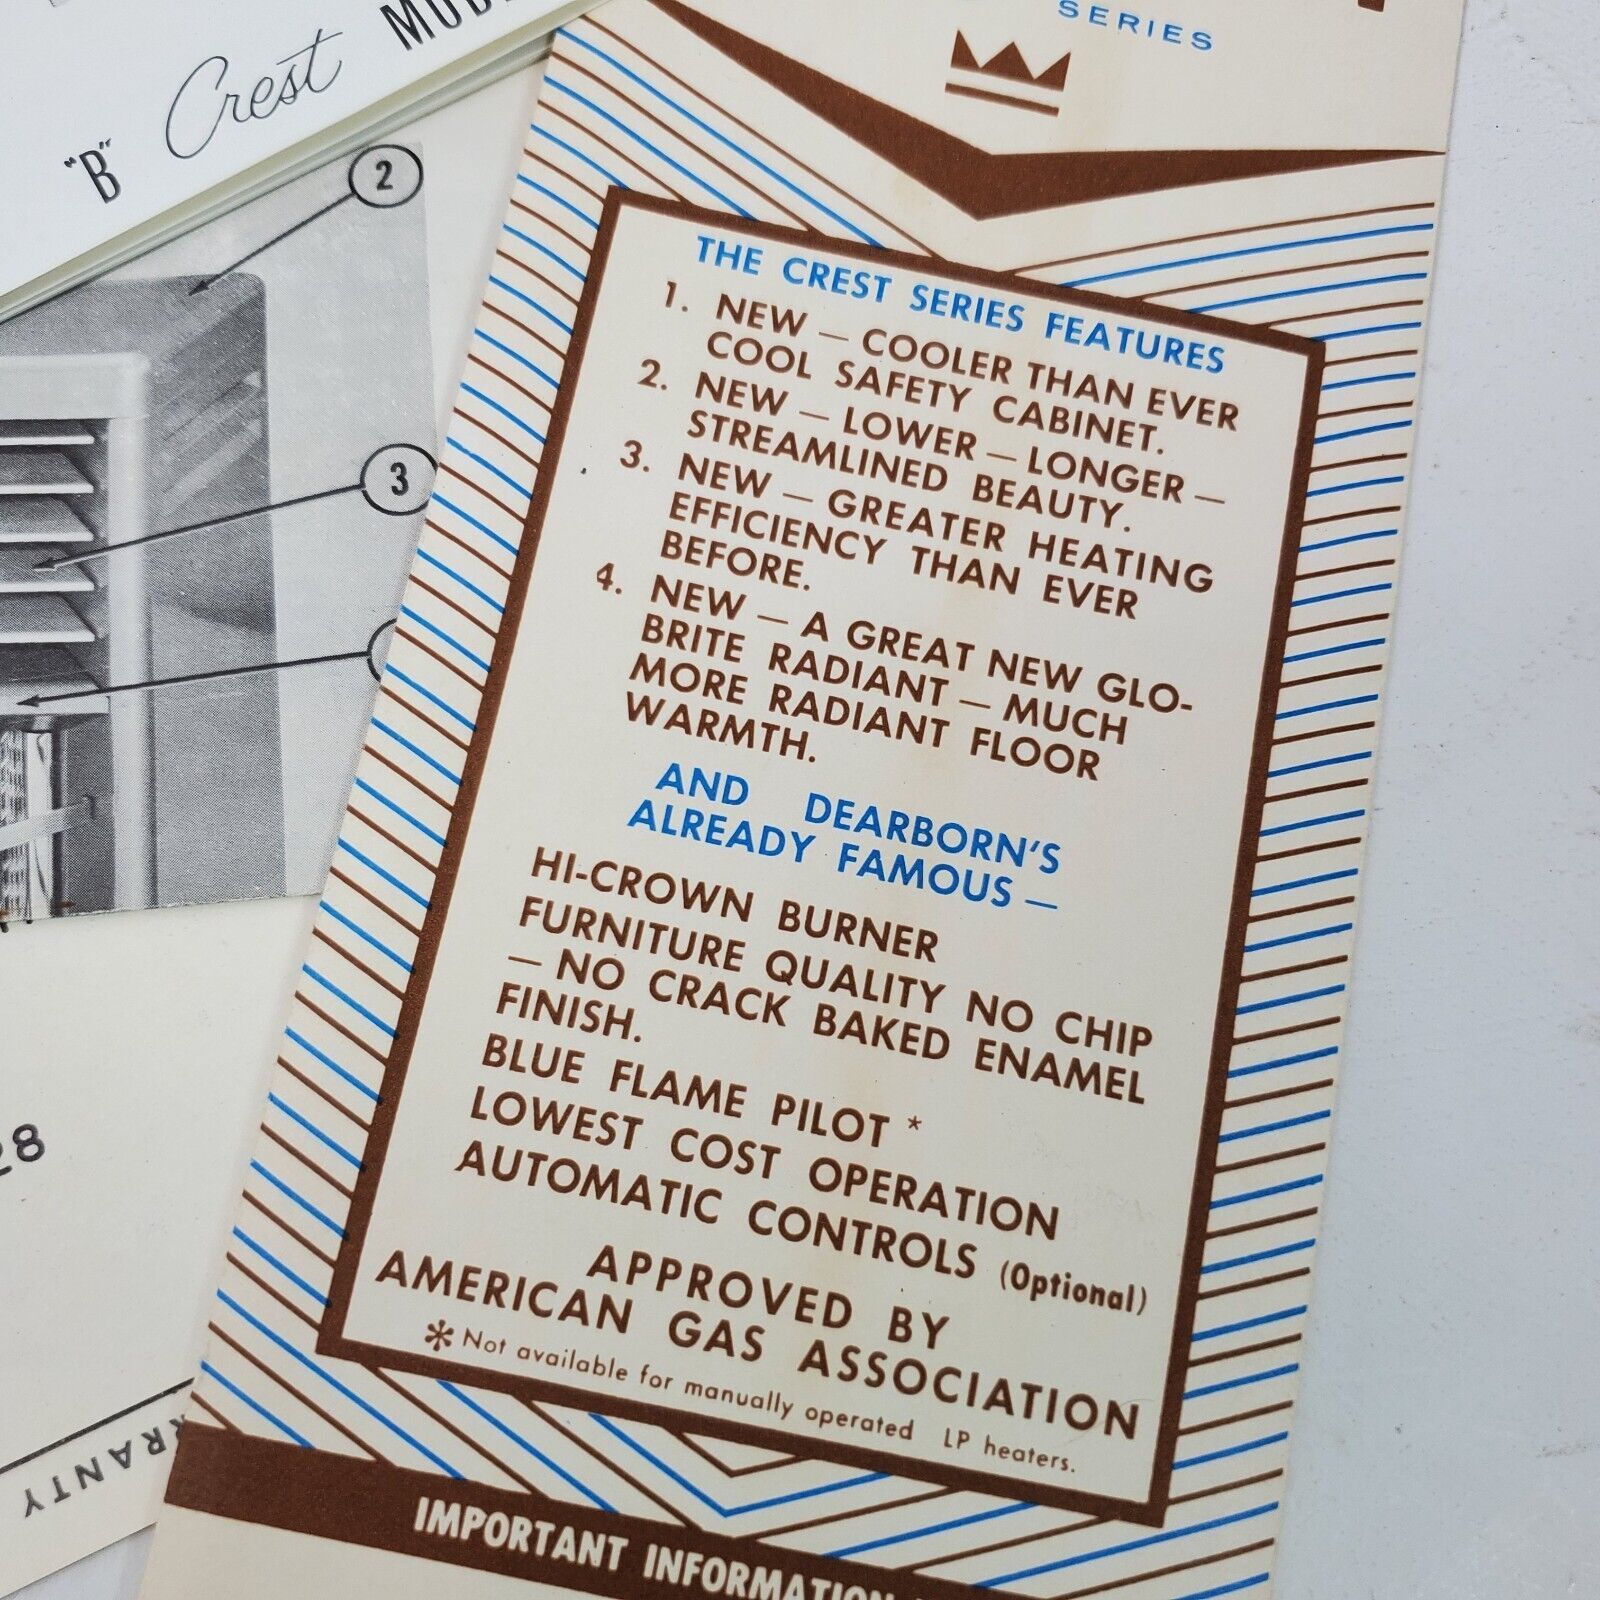 "B" Crest
2
3
28
SERIES
THE CREST SERIES FEATURES
1. NEW — COOLER THAN EVER
COOL SAFETY CABINET.
2. NEW — LOWER — LONGER —
STREAMLINED BEAUTY.
3. NEW — GREATER HEATING
EFFICIENCY THAN EVER
BEFORE.
4. NEW — A GREAT NEW GLO-
BRITE RADIANT — MUCH
MORE RADIANT FLOOR
WARMTH.
AND DEARBORN'S
ALREADY FAMOUS —
HI-CROWN BURNER
FURNITURE QUALITY NO CHIP
— NO CRACK BAKED ENAMEL
FINISH.
BLUE FLAME PILOT *
LOWEST COST OPERATION
AUTOMATIC CONTROLS (Optional)
APPROVED BY
AMERICAN GAS ASSOCIATION
* Not available for manually operated LP heaters.
IMPORTANT INFORMATION